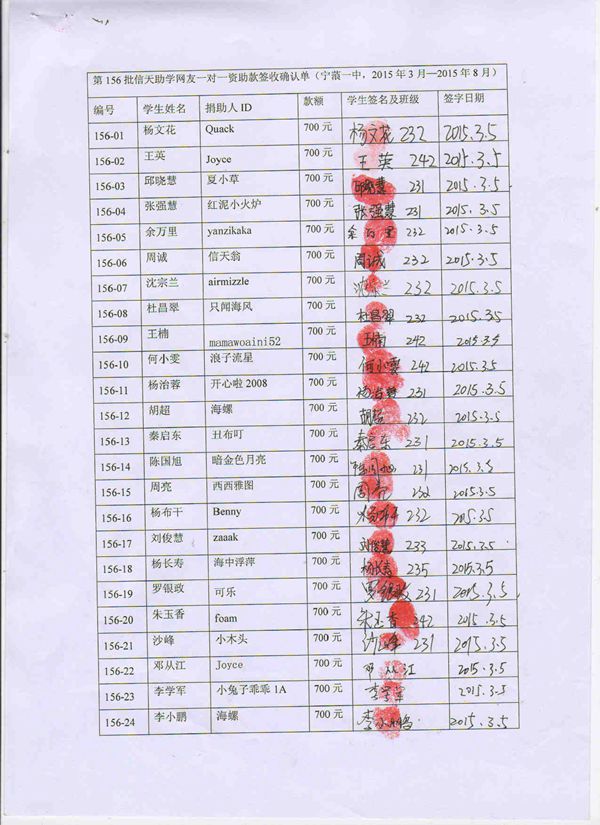 第 156 批信天助学网友一对一资助款签收确认单（宁蒗一中，2015 年 3 月—2015 年 8 月）
编号 学生姓名 捐助人 ID 款额 学生签名及班级 签字日期
156-01 杨文花 Quack 700 元 杨文花 232 2015.3.5
156-02 王英 Joyce 700 元 王英 242 2015.3.5
156-03 邱晓慧 夏小草 700 元 邱晓慧 231 2015.3.5
156-04 张强慧 红泥小火炉 700 元 张强慧 231 2015.3.5
156-05 余万里 yanzikaka 700 元 余万里 232 2015.3.5
156-06 周诚 信天翁 700 元 周诚 232 2015.3.5
156-07 沈宗兰 airmizzle 700 元 沈宗兰 232 2015.3.5
156-08 杜昌翠 只闻海风 700 元 杜昌翠 232 2015.3.5
156-09 王楠 mamawoaini52 700 元 王楠 242 2015.3.5
156-10 何小雯 浪子流星 700 元 何小雯 242 2015.3.5
156-11 杨治蓉 开心啦 2008 700 元 杨治蓉 231 2015.3.5
156-12 胡超 海螺 700 元 胡超 232 2015.3.5
156-13 秦启东 丑布叮 700 元 秦启东 231 2015.3.5
156-14 陈国旭 暗金色月亮 700 元 陈国旭 231 2015.3.5
156-15 周亮 西西雅图 700 元 周亮 232 2015.3.5
156-16 杨布干 Benny 700 元 杨布干 232 2015.3.5
156-17 刘俊慧 zaaak 700 元 刘俊慧 233 2015.3.5
156-18 杨长寿 海中浮萍 700 元 杨长寿 235 2015.3.5
156-19 罗银政 可乐 700 元 罗银政 231 2015.3.5
156-20 朱玉香 foam 700 元 朱玉香 242 2015.3.5
156-21 沙峰 小木头 700 元 沙峰 231 2015.3.5
156-22 邓从江 Joyce 700 元 邓从江 2015.3.5
156-23 李学军 小兔子乖乖 1A 700 元 李学军 2015.3.5
156-24 李小鹏 海螺 700 元 李小鹏 2015.3.5